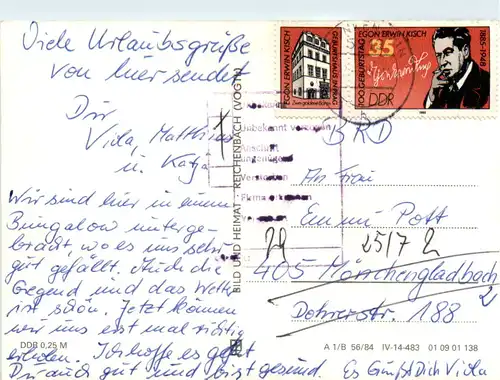 Viele Urlaubsgrüße
von hier sendet
Dir
Viola, Matthias
u. Katja
Wir sind hier in einem
Bungalow unterge-
bracht wo es uns sehr
gut gefällt. Auch die
Gegend und das Wetter
ist schön. Jetzt können
wir uns erst mal richtig
erholen. Ich hoffe es geht
Dir auch gut und bist gesund.
Es Grüßt Dich Viola
DDR 0,25 M
BILD UND HEIMAT REICHENBACH (VOGTL)
EGON ERWIN KISCH
GEBURTSHAUS IN PRAG
100. GEBURTSTAG
EGON ERWIN KISCH
1885-1948
35
DDR
1985
Unbekannt verzogen
Anschrift
ungenügend
Verstorben
BRD
An Frau
Emmi Pott
29
25/7 2
405 Mönchengladbach
2
Dohrerstr. 188
A 1/B 56/84 IV-14-483 01 09 01 138